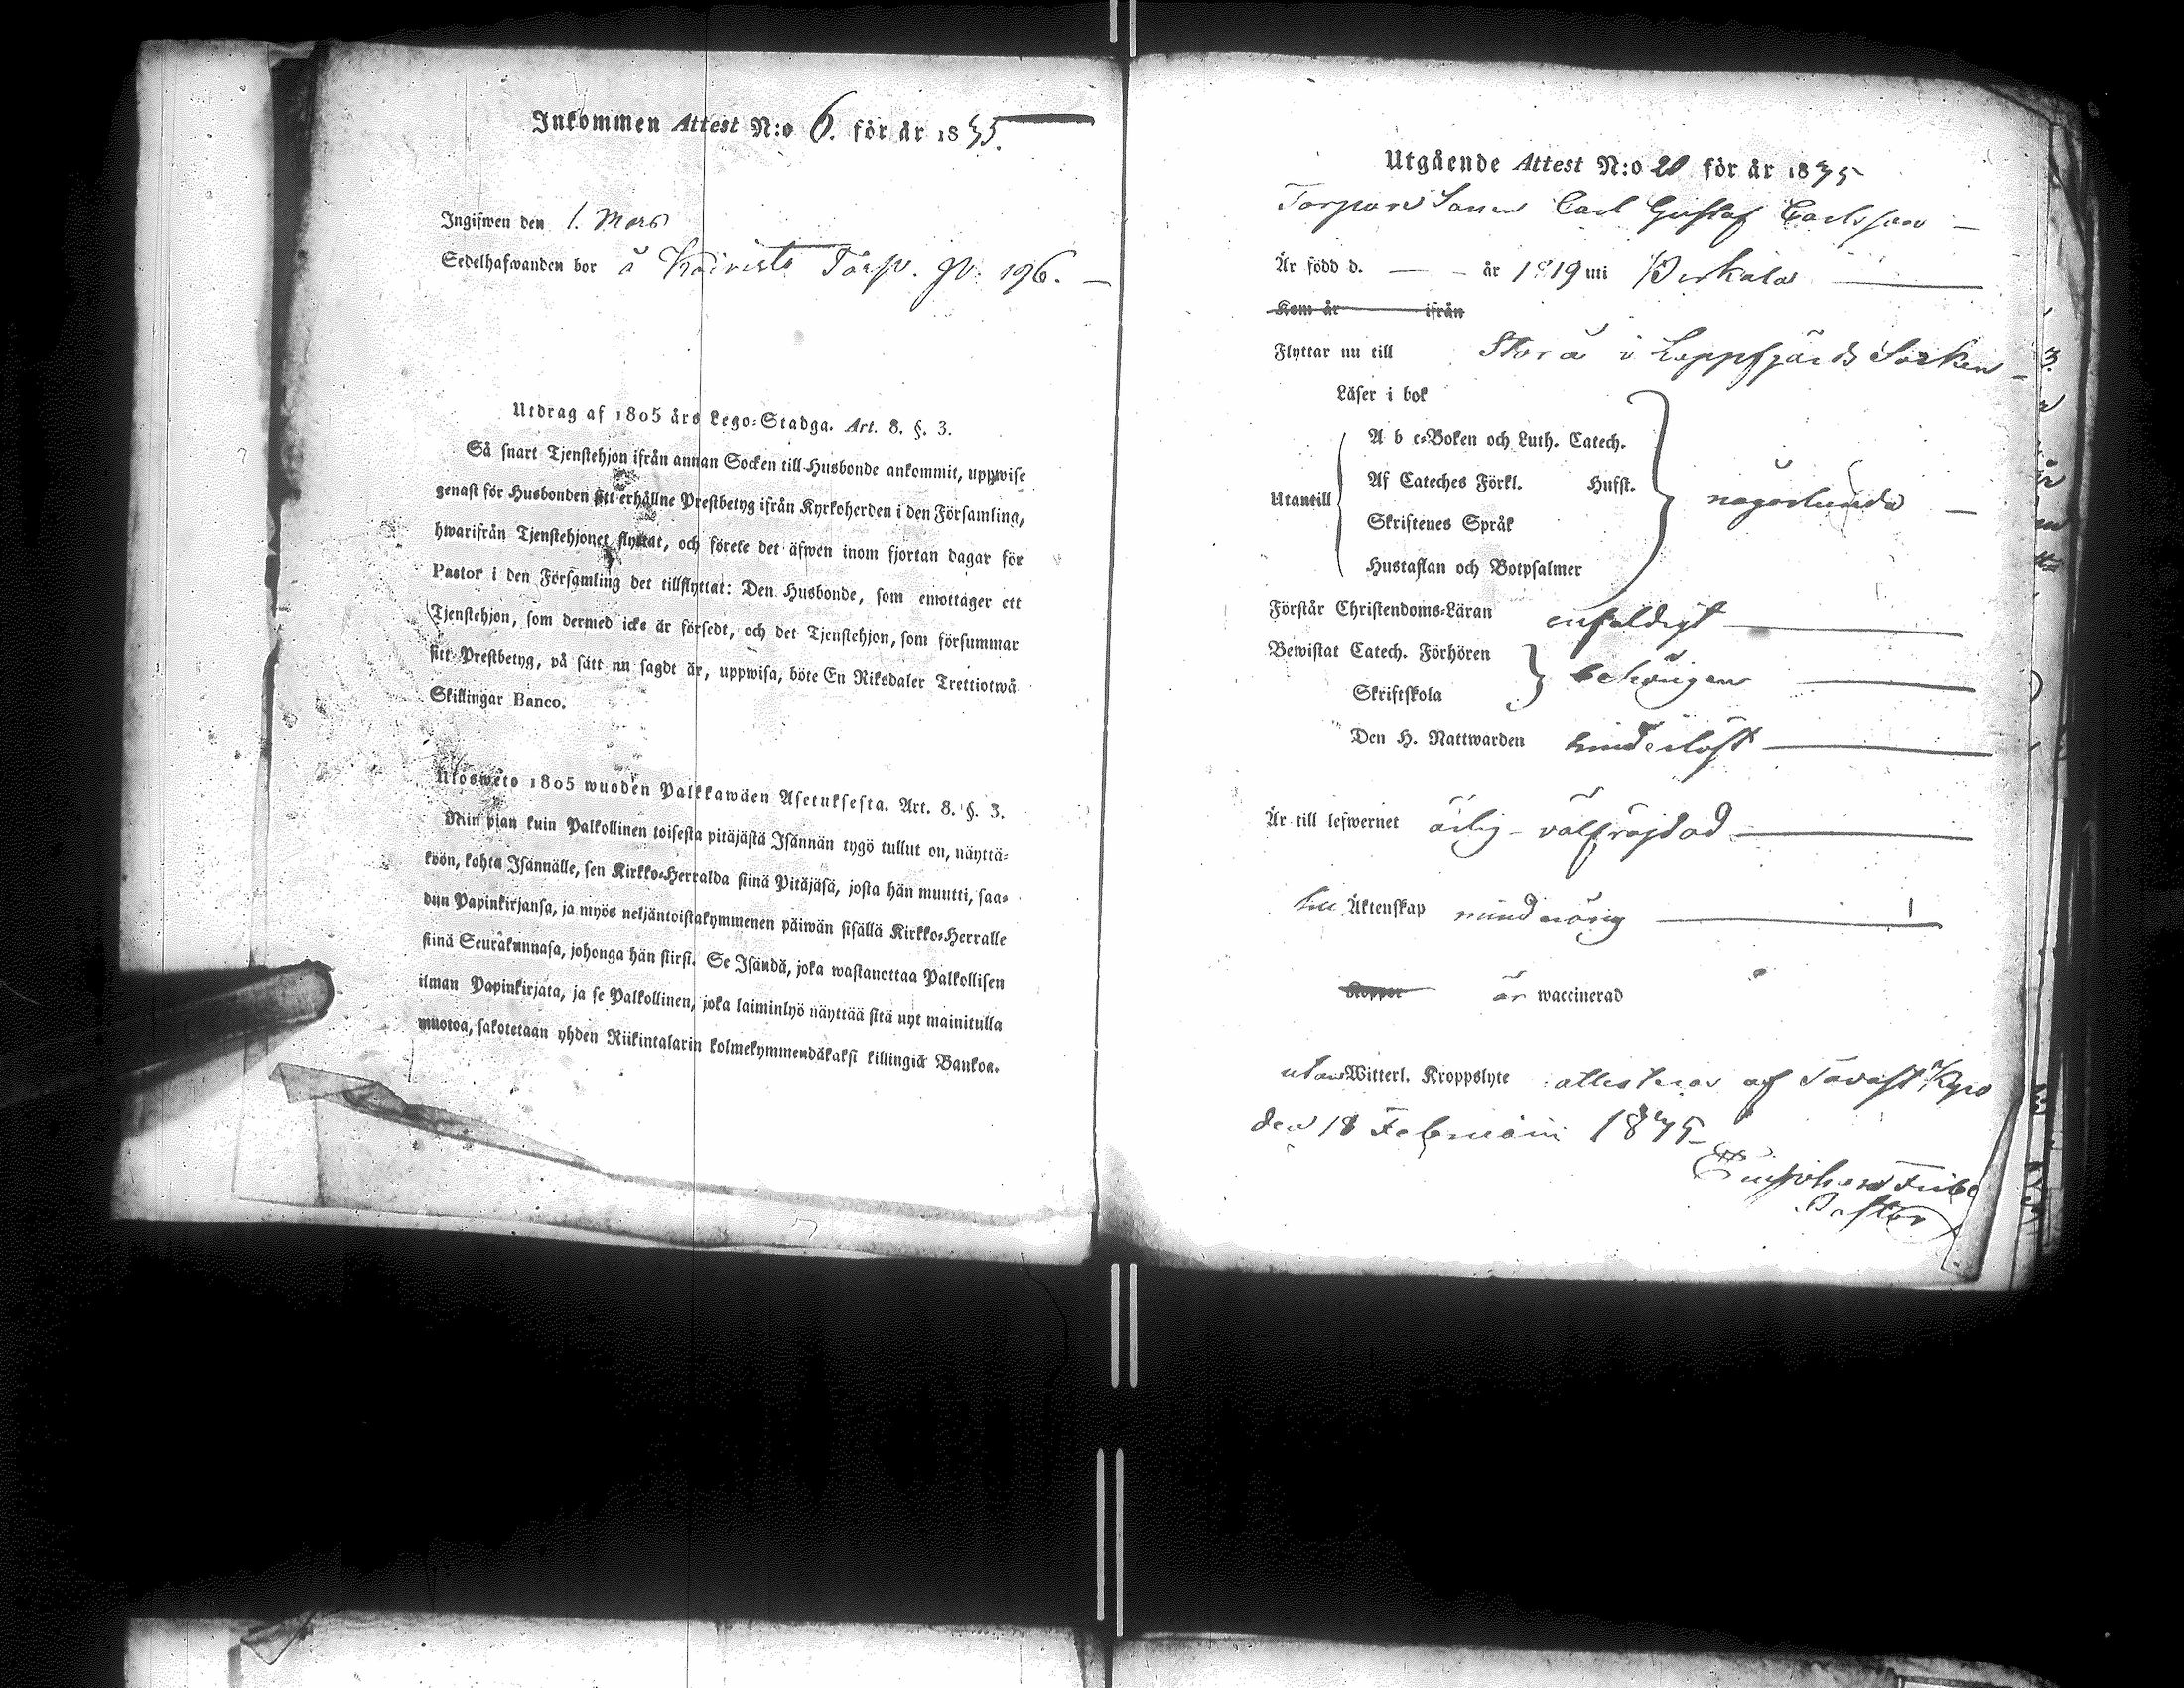 Inkommen Attest N:o 6. för år 1835.
Ingifwen den 1. Mars
Sedelhafwanden bor å Koivisto Torp. p. 196.
Utdrag af 1805 års Lego-Stadga. Art. 8. §. 3.
Så snart Tjenstehjon ifrån annan Socken till Husbonde ankommit, uppwise
genast för Husbonden sitt erhållne Prestbetyg ifrån Kyrkoherden i den Församling,
hwarifrån Tjenstehjonet flyttat, och förete det äfwen inom fjortan dagar för
Pastor i den Församling det tillflyttat: Den Husbonde, som emottager ett
Tjenstehjon, som dermed icke är försedt, och det Tjenstehjon, som försummar
sitt Prestbetyg, på sätt nu sagdt är, uppwisa, böte En Riksdaler Trettiotwå
Skillingar Banco.
Ulosweto 1805 wuoden Palkkawäen Asetuksesta. Art. 8. §. 3.
Niin pian kuin Palkollinen toisesta pitäjästä Isännän tygö tullut on, näyttä-
köön, kohta Isännälle, sen Kirkko-Herralda siinä Pitäjäsä, josta hän muutti, saa-
dun Papinkirjansa, ja myös neljäntoistakymmenen päiwän sisällä Kirkko-Herralle
siinä Seurakunnasa, johonga hän siirsi. Se Isändä, joka wastanottaa Palkollisen
ilman Papinkirjata, ja se Palkollinen, joka laiminlyö näyttää sitä nyt mainitulla
muotoa, sakotetaan yhden Riikintalarin kolmekymmendäkaksi killingiä Bankoa.
Utgående Attest N:o 20 för år 1835
Torpare Sonen Carl Gustaf Carlsson
Är född d. — år 1819 uti Birkala
Kom år ifrån
Flyttar nu till Storå i Lappfjärds Socken
Läser i bok
A b c-Boken och Luth. Catech.
Af Cateches Förkl. Husst.
Utantill någorlunda
Skriftenes Språk
Hustaflan och Botpsalmer
Förstår Christendoms-Läran enfaldigt
Bewistat Catech. Förhören behörigen
Skriftskola
Den H. Nattwarden hinderlöst
Är till lefwernet ärlig välfräjdad
till Äktenskap mindreårig
Koppor är waccinerad
utan Witterl. Kroppslyte attesteras af Tavast Kyro
den 18 Februarii 1835
Pastor